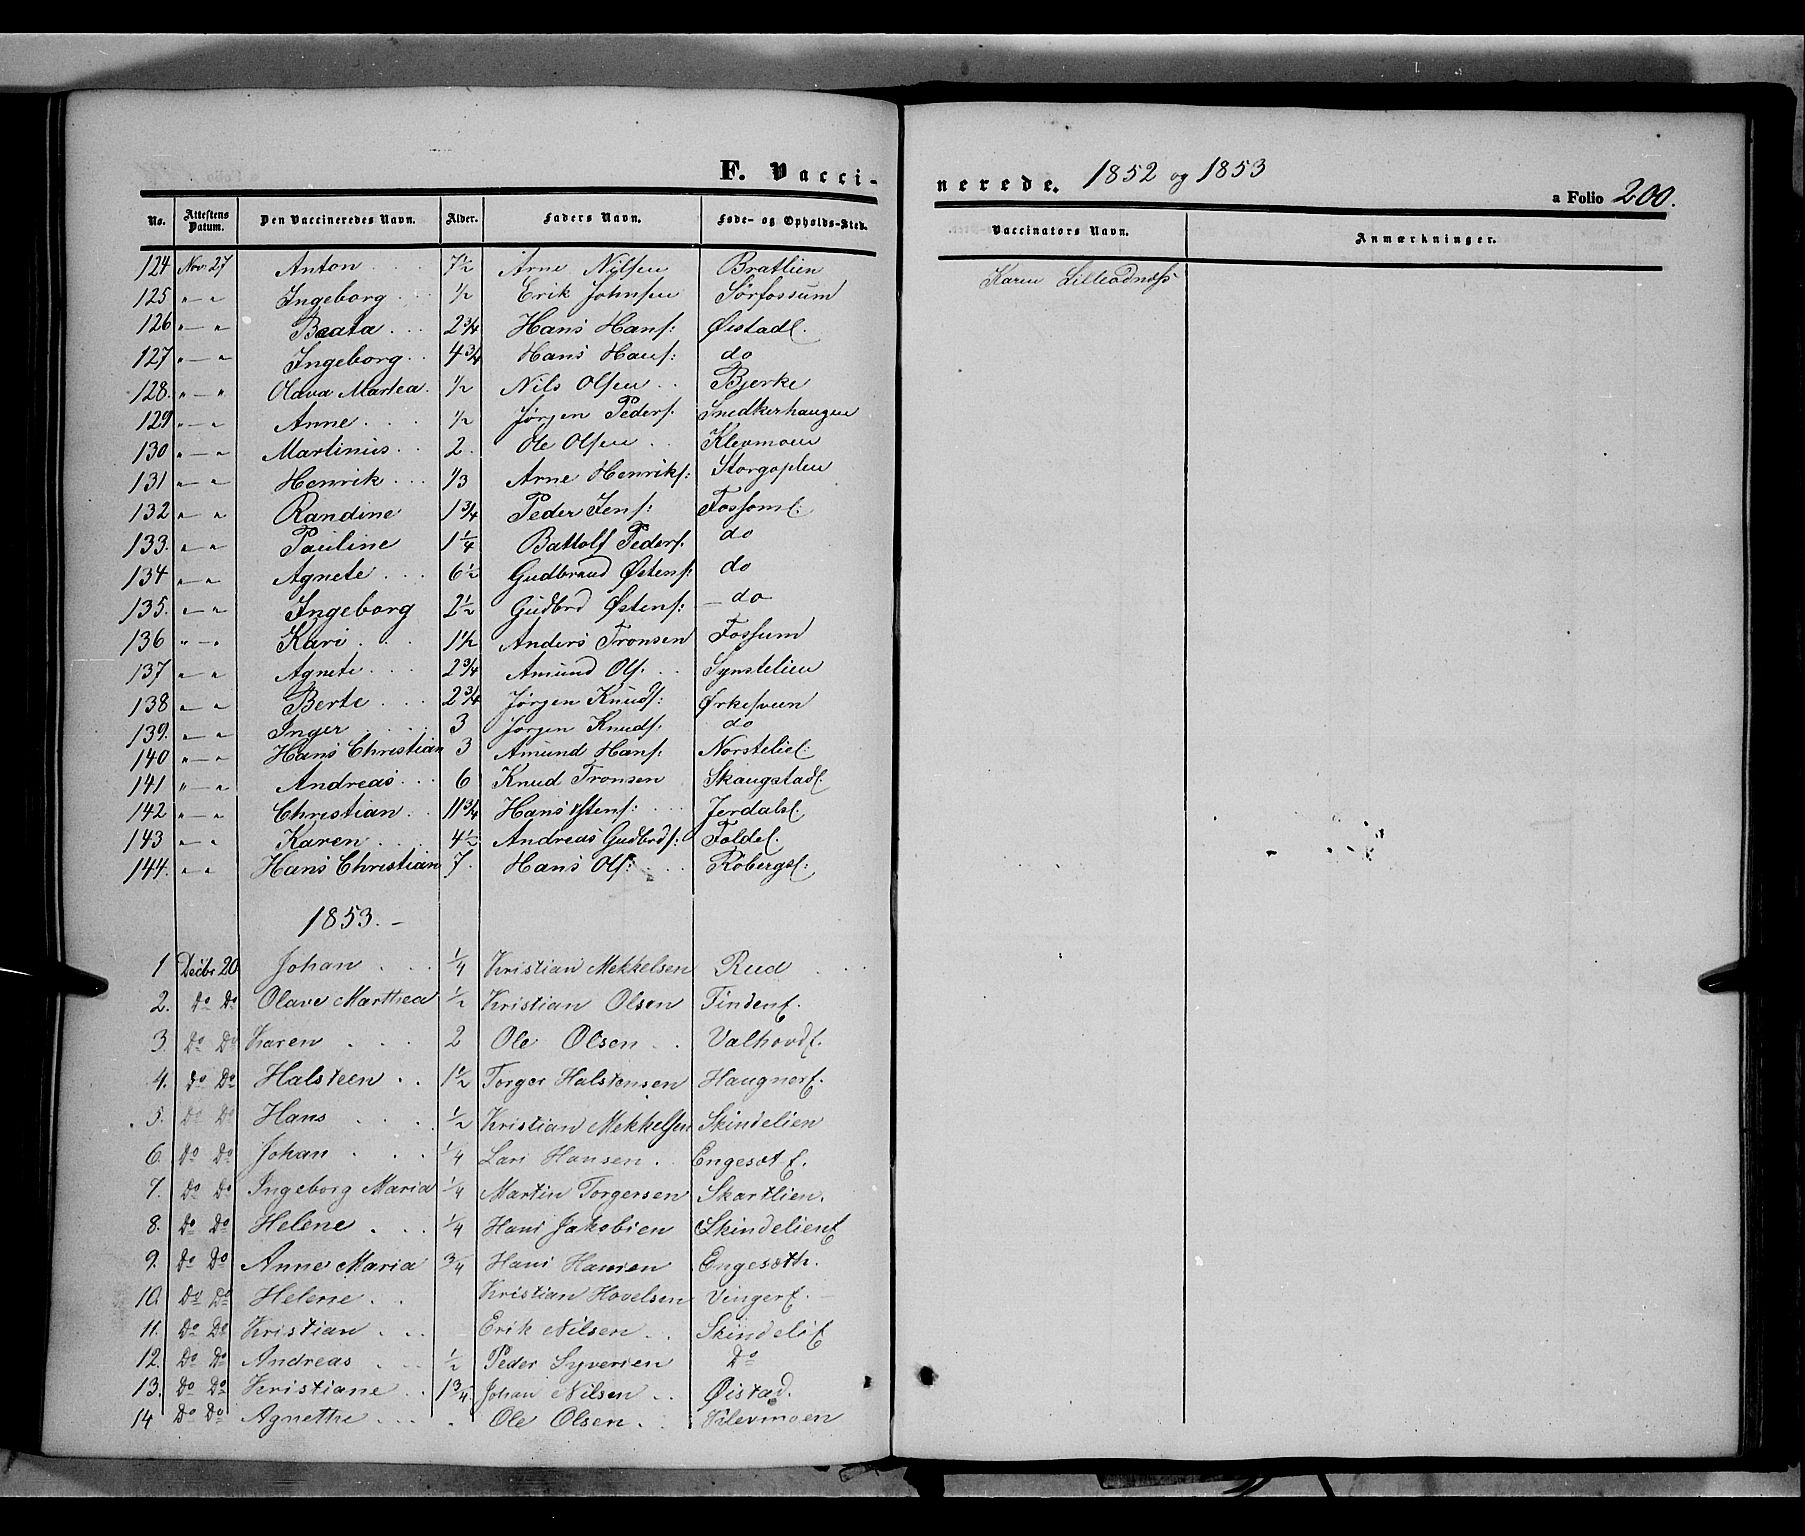 F. Vacci-
nerede. 1852 og 1853
a Folio 200.
No. Attestens Datum. Den Vaccineredes Navn. Alder. Faders Navn. Føde- og Opholds-Sted. Vaccinators Navn. Anmærkninger.
124 Nov. 27 Anton 7½ Arne Nilsen Bratlien Karen Lilleodness
125 " — " Ingeborg ½ Erik Johnsen Sörfossum
126 " — " Beata 2¾ Hans Hans: Øistadl.
127 " — " Ingeborg 4¾ Hans Hans: do
128. " — " Olava Martea ½ Nils Olsen Bjerke
129 " — " Anne ½ Jørgen Peders. Snedkerhaugen
130 " — " Martinus 2. Ole Olsen Klevmoen
131 " — " Henrik ⅓ Arne Henriks: Storgoplen
132 " — " Randine 1¾ Peder Jens: Fossoml:
133. " — " Pauline 1¼ Battolf Peders. do
134 " — " Agnete 6½ Gudbrand Østens: do
135. " — " Ingeborg 2½ Gudbrd Østens: — do
136 " — " Kari 1½ Anders Tronsen Fossum
137 " — " Agnete 2¾ Amund Ols: Synstelien
138 " — " Berte 2¾ Jørgen Knuds: Ørkesveen
139. " — " Inger 3 Jørgen Knuds. do
140 " — " Hans Christian 3 Amund Hans: Norsteliel:
141 " — " Andreas 6 Knud Tronsen Skaugstadl.
142 " — " Christian 11¾ Hans Østens: Jerdalsl.
143 " — " Karen 4½ Andreas Gudbrds: Foldel.
144. " " Hans Christian 7 Hans Ols: Robergsl:
1853. —
1 Decbr 20 Johan ¼ Kristian Mekkelsen Rud
2. Do Do Olave Marthea ½ Kristian Olsen Tindenf.
3. Do Do Karen 2 Ole Olsen Valhovdf.
4. Do Do Halsteen 1½ Torger Halstensen Haugnerf.
5. Do Do Hans ½ Kristian Mekkelsen Skindelien
6. Do Do Johan ¼ Lars Hansen Engesæt f.
7. Do Do Ingeborg Maria ¼ Martin Torgersen Skartlien.
8. Do Do Helene ¼ Hans Jakobsen Skindelienf
9. Do Do Anne Maria ¾ Hans Hansen Engesæth.
10. Do Do Helene Kristian Hovelsen Vingerf.
11. Do Do Kristian Erik Nilsen Skindelif
12. Do Do Andreas ½ Peder Syversen Do
13. Do Do Kristiane 1¾ Johan Nilsen Øistad.
14 Do Do Agnethe Ole Olsen Klevmoen